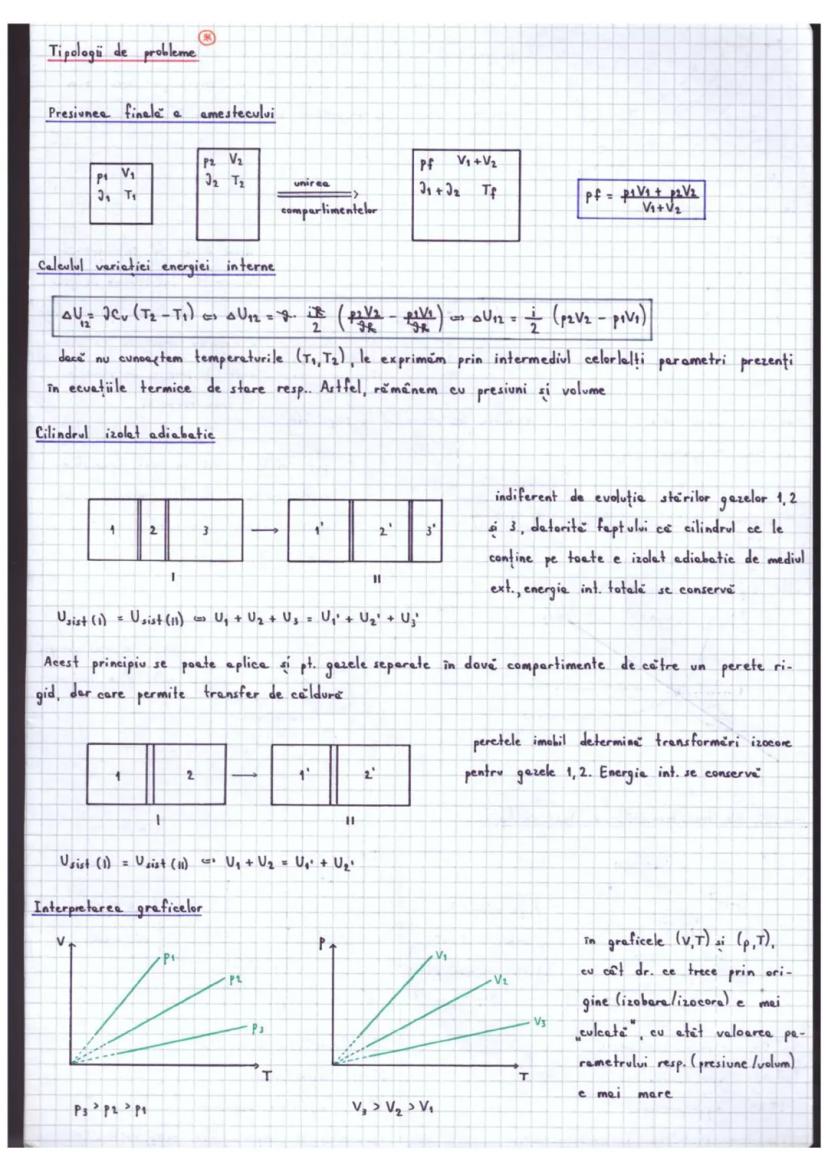 Tipologii de probleme *
Presiunea finală a amestecului
p1 V1
ϑ1 T1
p2 V2
ϑ2 T2
unirea
compartimentelor
pf V1+V2
ϑ1+ϑ2 Tf
pf = (p1V1 + p2V2)/(V1+V2)
Calculul variației energiei interne
ΔU12 = ϑCv (T2 - T1) ⇔ ΔU12 = ϑ · iR/2 (p2V2/ϑR - p1V1/ϑR) ⇔ ΔU12 = i/2 (p2V2 - p1V1)
dacă nu cunoaștem temperaturile (T1,T2), le exprimăm prin intermediul celorlalți parametri prezenți
în ecuațiile termice de stare resp.. Astfel, rămânem cu presiuni și volume
Cilindrul izolat adiabatic
1 2 3 → 1' 2' 3'
I II
indiferent de evoluția stărilor gazelor 1,2
și 3, datorită faptului că cilindrul ce le
conține pe toate e izolat adiabatic de mediul
ext., energia int. totală se conservă
Usist(I) = Usist(II) ⇔ U1 + U2 + U3 = U1' + U2' + U3'
Acest principiu se poate aplica și pt. gazele separate în două compartimente de către un perete ri-
gid, dar care permite transfer de căldură
1 2 → 1' 2'
I II
peretele imobil determină transformări izocore
pentru gazele 1,2. Energia int. se conservă
Usist(I) = Usist(II) ⇔ U1 + U2 = U1' + U2'
Interpretarea graficelor
V
p1
p2
p3
T
p3 > p2 > p1
P
V1
V2
V3
T
V3 > V2 > V1
în graficele (V,T) și (p,T),
cu cât dr. ce trece prin ori-
gine (izobara/izocora) e mai
„culcată", cu atât valoarea pa-
rametrului resp. (presiune/volum)
e mai mare